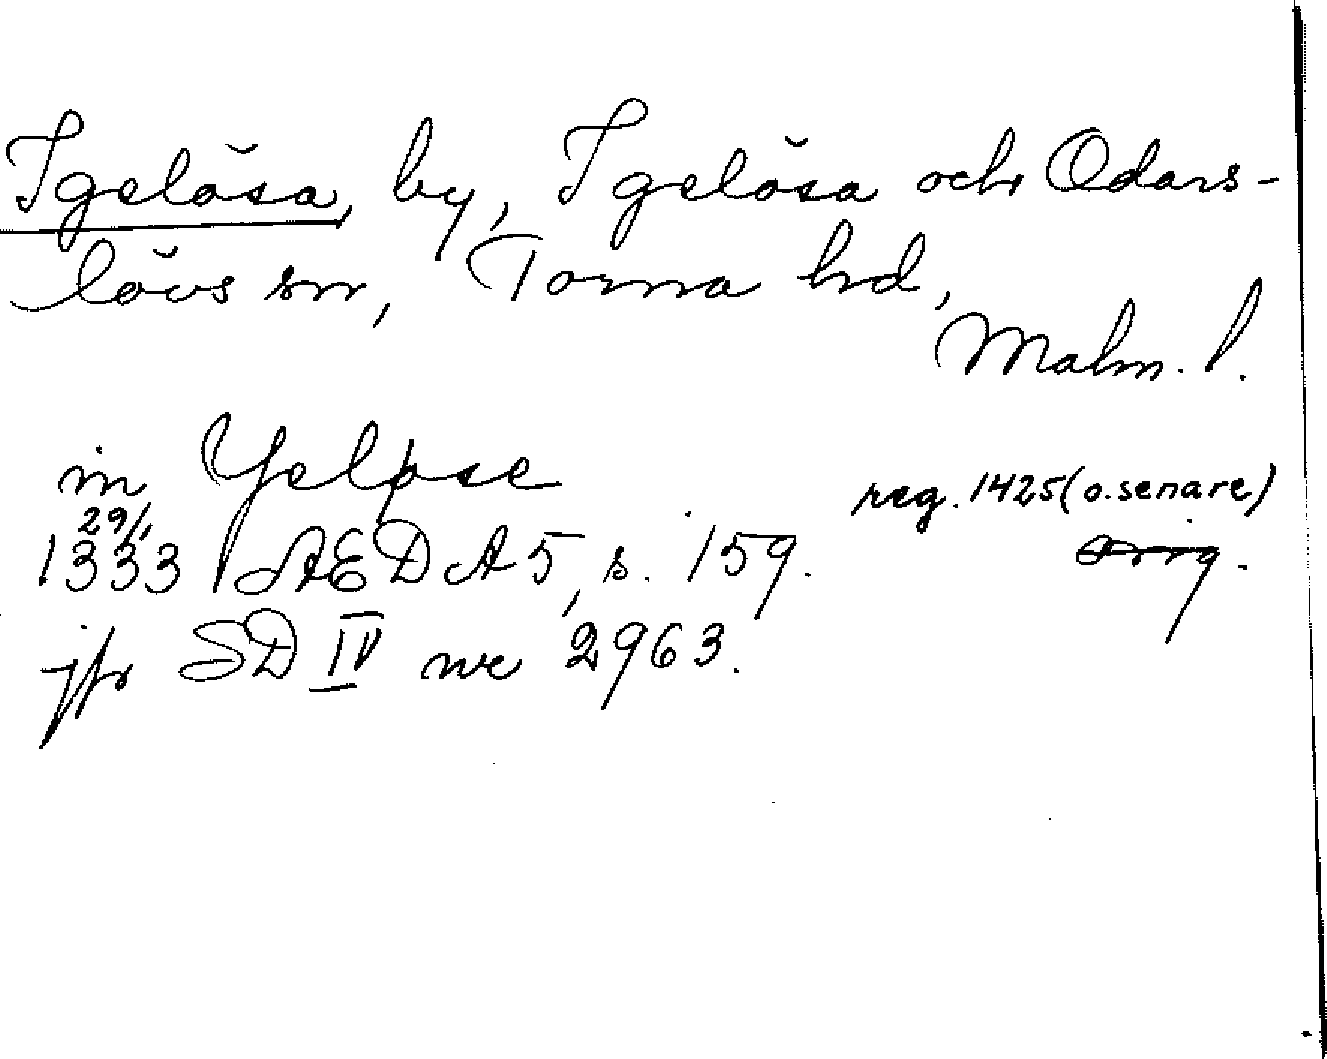 Igelösa, by, Igelösa och Odars-
lövs sn, Torna hd,
Malm. l.
in Yeløse
reg. 1425 (o. senare)
29/1
1333 ÄEDA 5, s. 159. orig.
jfr SD IV nr 2963.